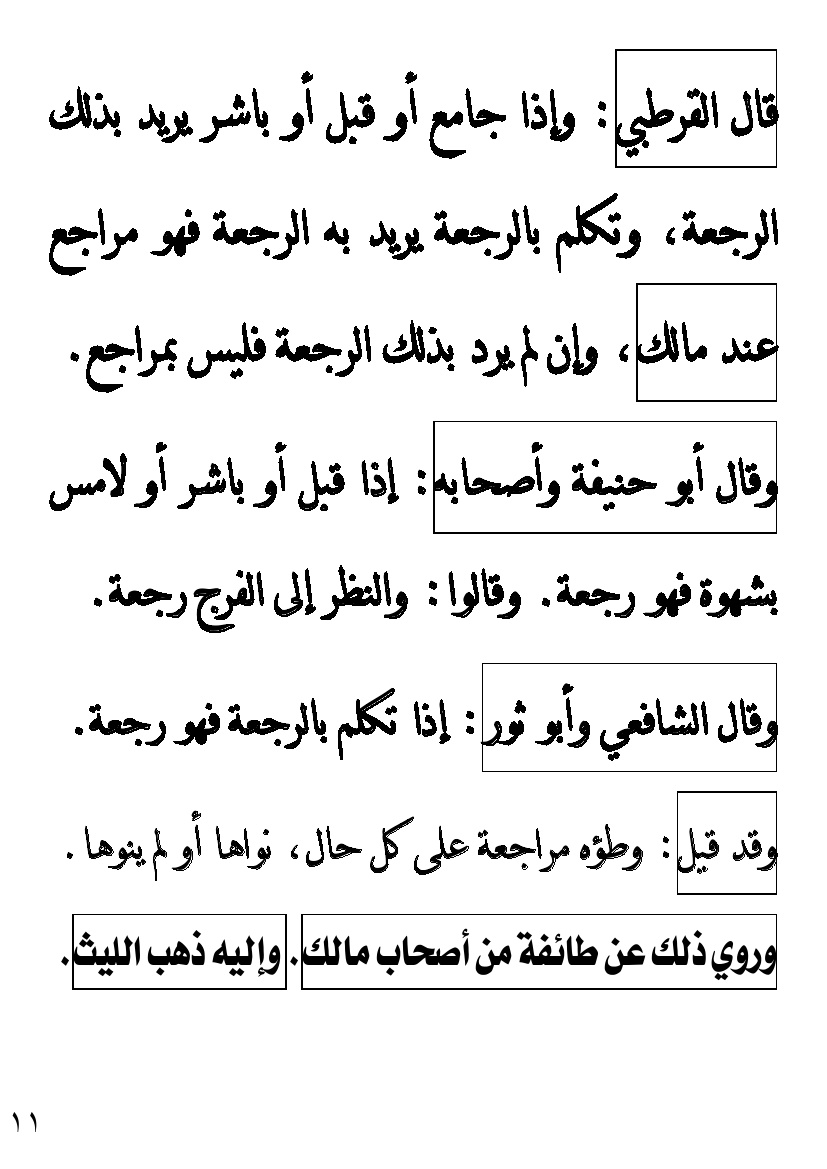 قال القرطبي : وإذا جامع أو قبل أو باشر يريد بذلك
الرجعة، وتكلم بالرجعة يريد به الرجعة فهو مراجع
عند مالك، وإن لم يرد بذلك الرجعة فليس بمراجع.
وقال أبو حنيفة وأصحابه: إذا قبل أو باشر أو لامس
بشهوة فهو رجعة. وقالوا: والنظر إلى الفرج رجعة.
وقال الشافعي وأبو ثور: إذا تكلم بالرجعة فهو رجعة.
وقد قيل: وطؤه مراجعة على كل حال، نواها أو لم ينوها.
وروي ذلك عن طائفة من أصحاب مالك. وإليه ذهب الليث.
١١